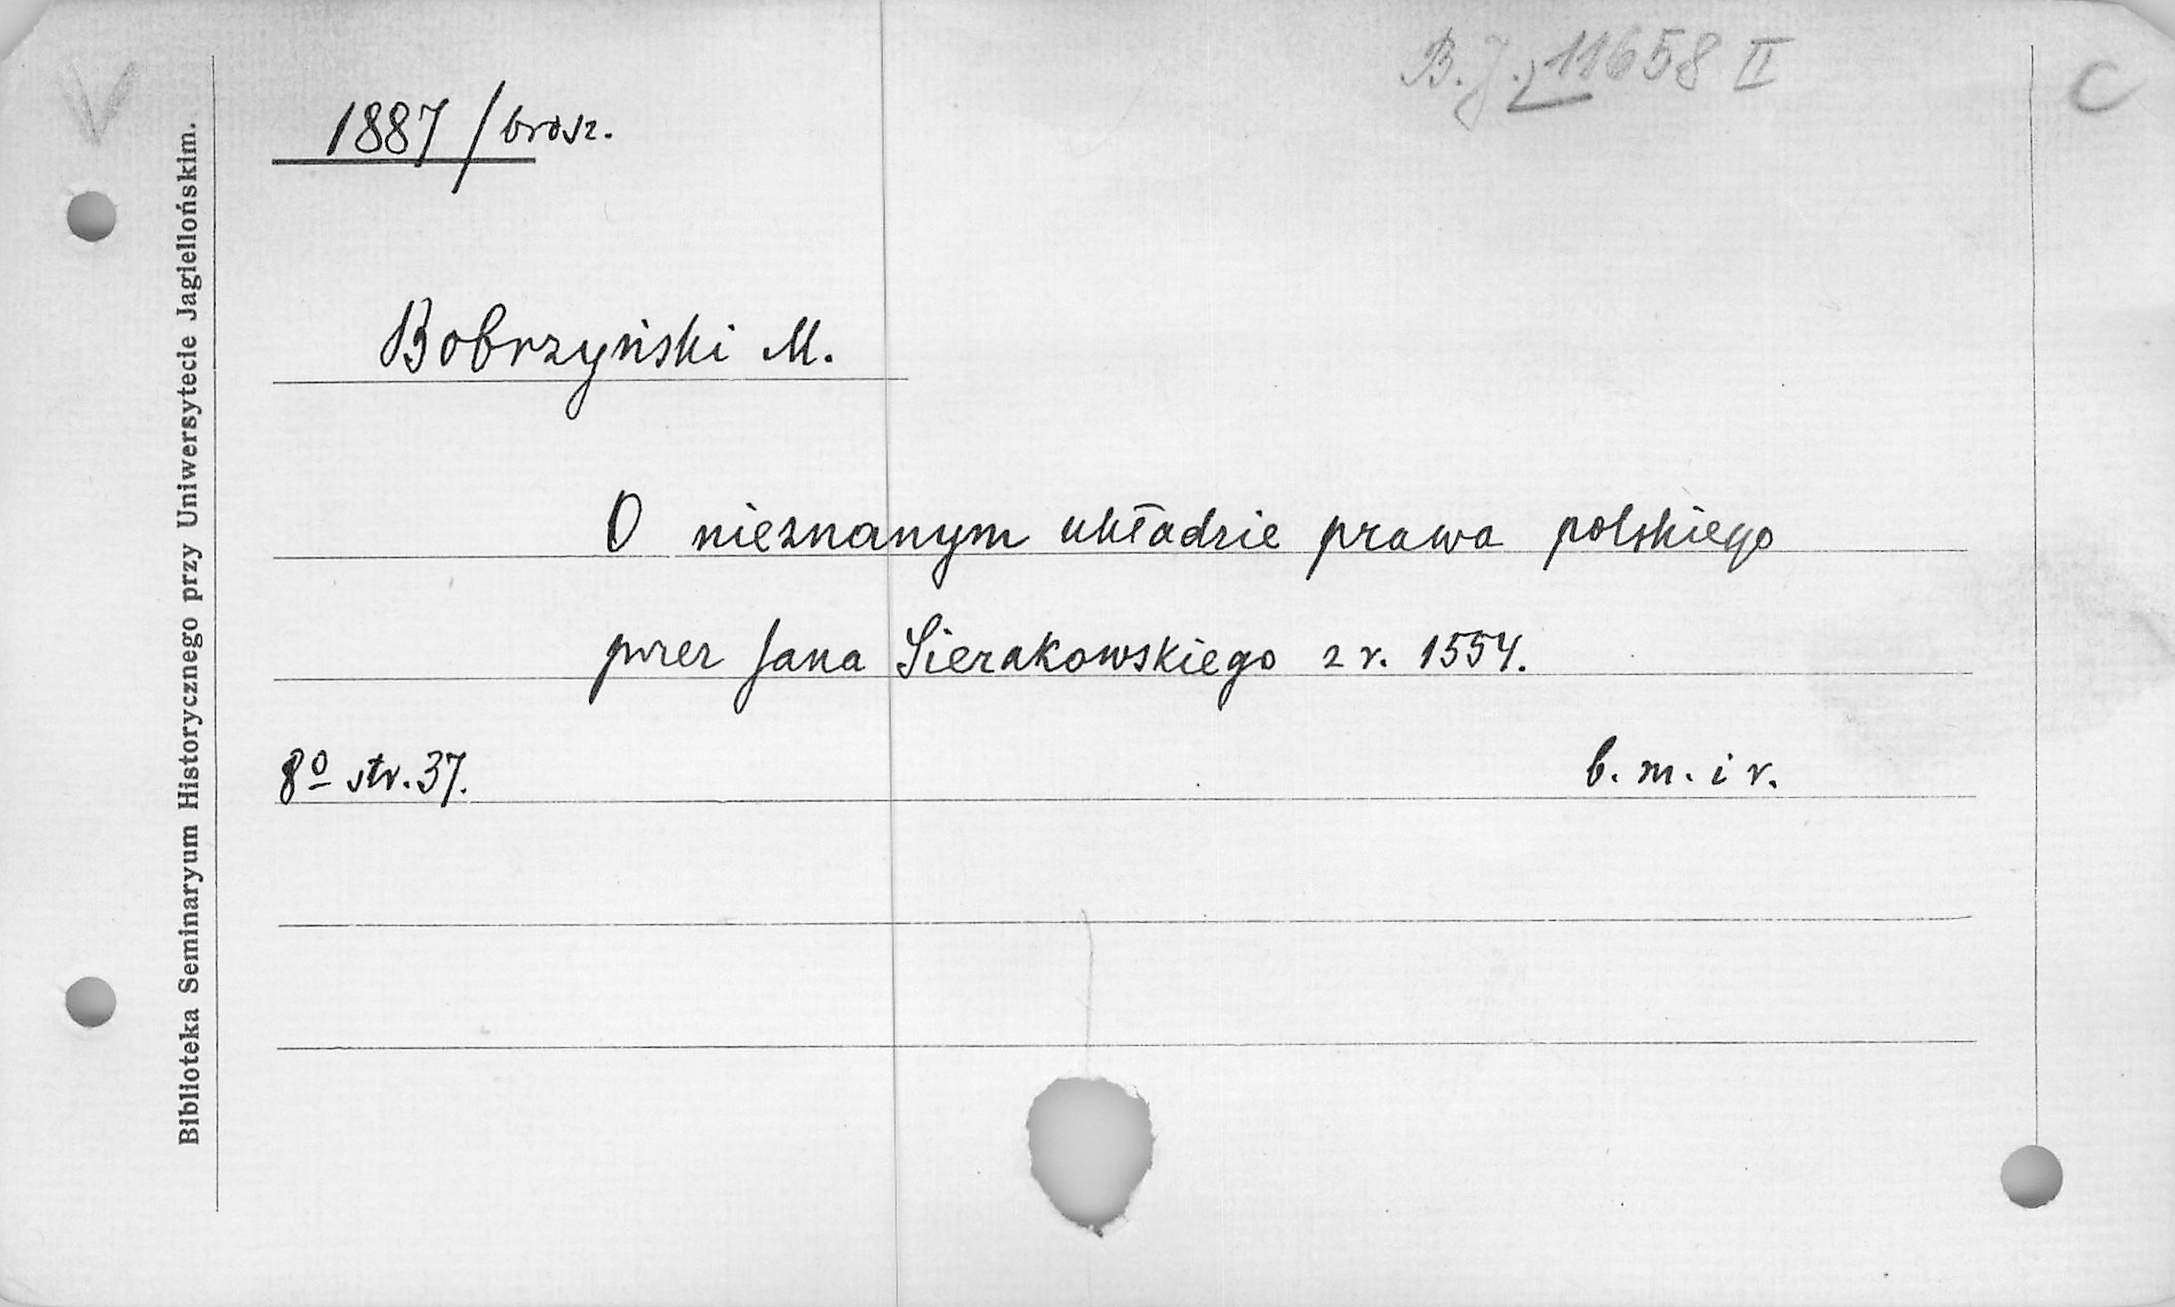 B. J. 11658 II
C
V
1887/brosz.
Bobrzyński M.
O nieznanym układzie prawa polskiego
przez Jana Sierakowskiego z r. 1554.
8º str. 37.
b. m. i r.
Biblioteka Seminaryum Historycznego przy Uniwersytecie Jagiellońskim.